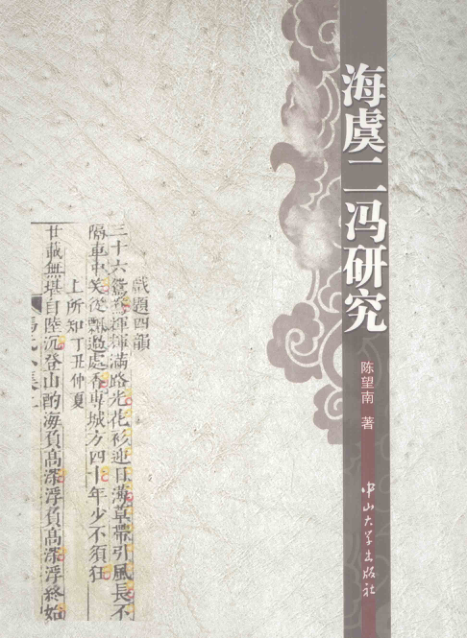 海虞二冯研究
陈望南 著
中山大学出版社
戲題四韻
三十六鴛鴦輝滿路光花衫迎日薄草帶引風長不
隔車中笑從飄過處香專城方四十年少不須狂
上所知丁丑仲夏
廿載無堪自陸沉登山酌海負高深浮負高深浮終始